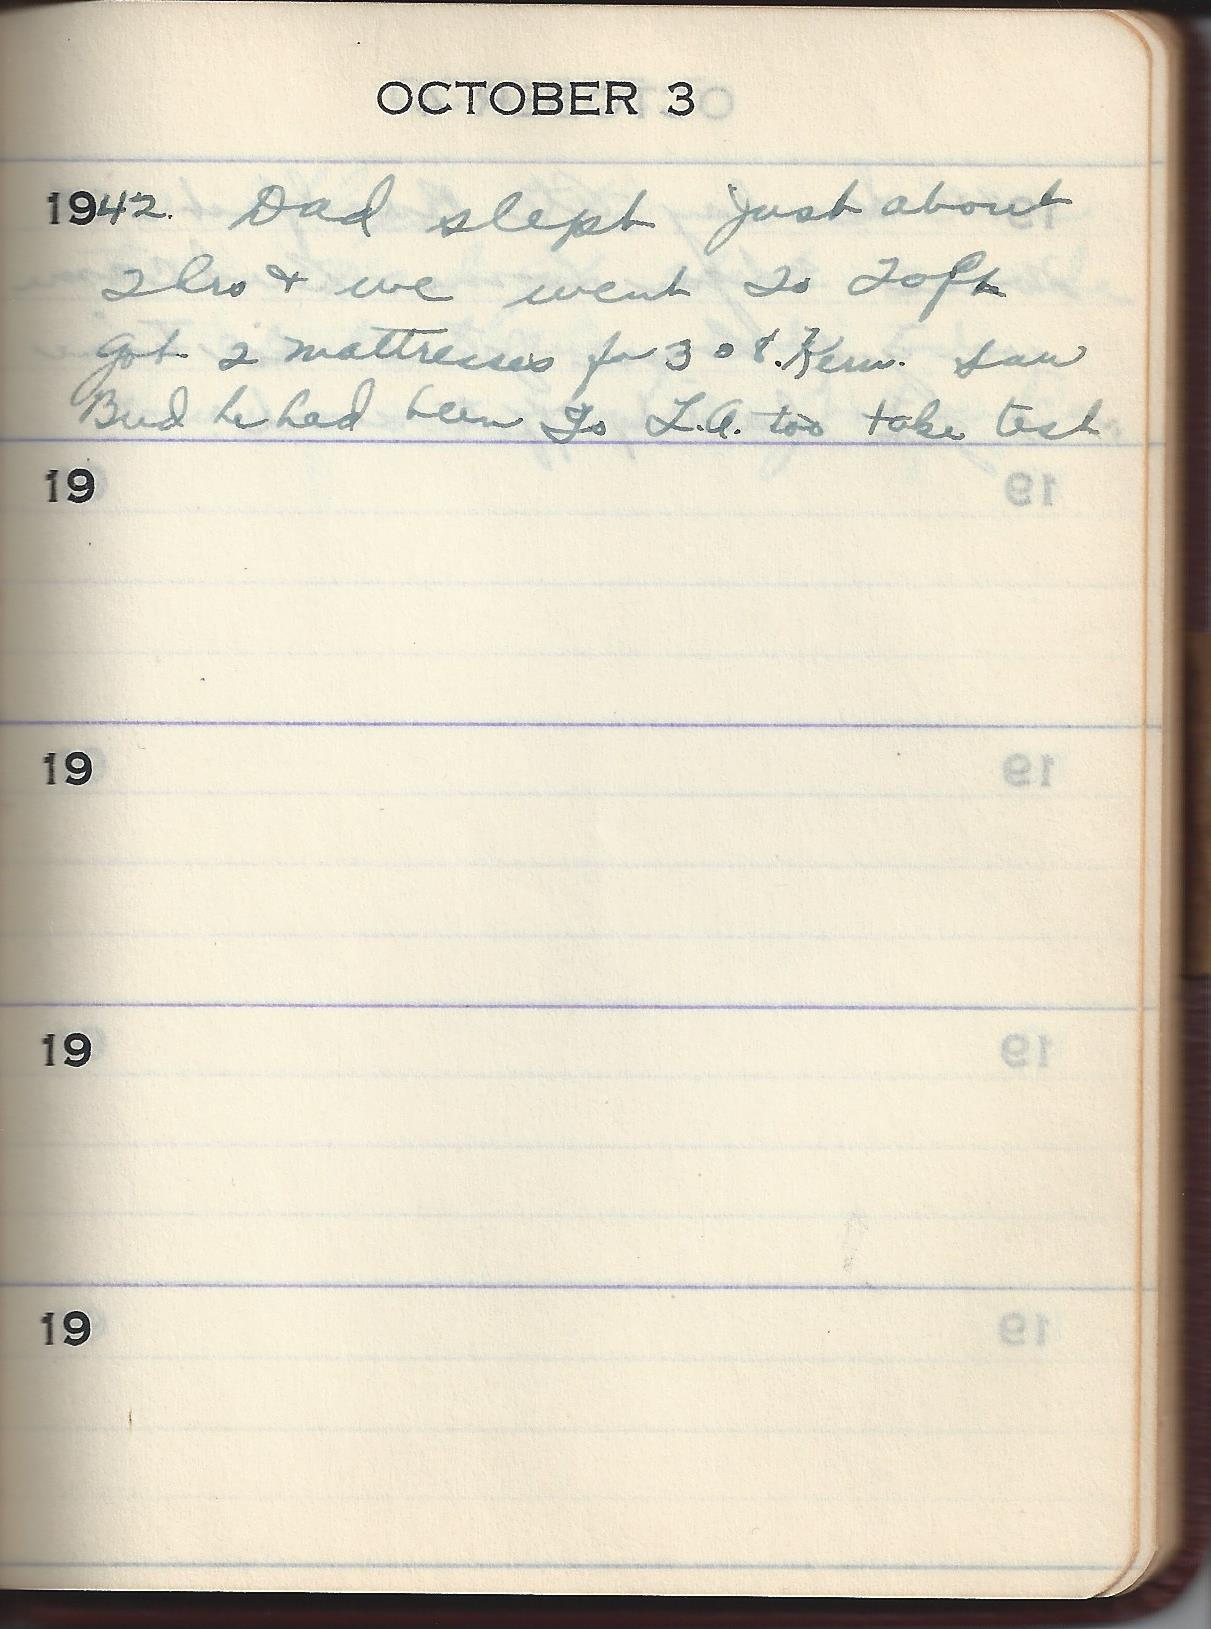 OCTOBER 3
1942. Dad slept just about
2 hrs & we went to Taft
got 2 mattresses for 30 Kern. saw
Bud he had been to L.A. too take test
19
19
19
19